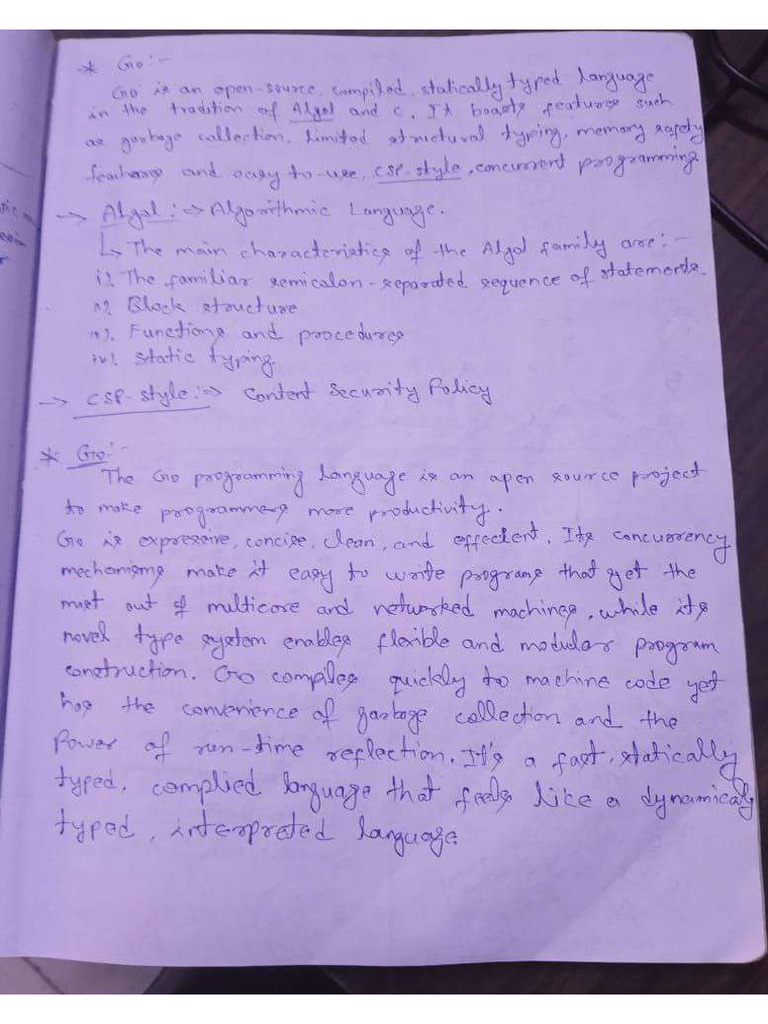 * Go:-
Go is an open-source, compiled, statically typed language
in the tradition of Algol and C. It boasts features such
as garbage collection, limited structural typing, memory safety
features and easy to-use, CSP-style, concurrent programming
→ Algol:⇒ Algorithmic Language.
↳ The main characteristics of the Algol family are:-
i). The familiar semicolon-separated sequence of statements.
ii). Block structure
iii). Functions and procedures
iv). Static typing
→ CSP-style:⇒ Content Security Policy
* Go:-
The Go programming language is an open source project
to make programmers more productivity.
Go is expressive, concise, clean, and effecient. Its concurrency
mechanisms make it easy to write programs that get the
most out of multicore and networked machines, while its
novel type system enables flexible and modular program
construction. Go compiles quickly to machine code yet
has the convenience of garbage collection and the
Power of run-time reflection. It's a fast, statically
typed, complied language that feels like a dynamicaly
typed, interpreted language.